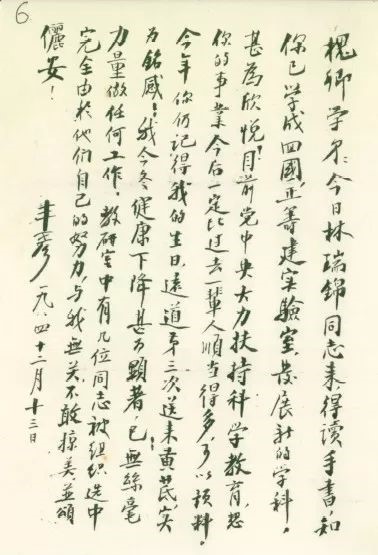 6
槐卿学弟：今日林瑞锦同志来得读手书，知
你已学成回国，正筹建实验室，发展新的学科。
甚为欣悦。目前党中央大力扶持科学教育，想
你的事业今后一定比过去一辈人顺当得多，可以预料。
今年你仍记得我的生日，远道第三次送来黄芪，实
为铭感！我今冬健康下降甚为显著，已无丝毫
力量做任何工作。教研室中有几位同志被组织选中
完全由于他们自己的努力，与我无关，不敢掠美。并颂
俪安！
一九 四 十二月十三日